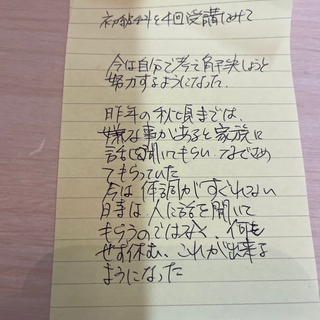 初級科を4回受講してみて
今は自分で考え解決しようと
努力するようになった。
昨年の秋頃までは、
嫌な事があると家族に
話を聞いてもらい、なぐさめ
てもらっていた
今は体調がすぐれない
時は人に話を聞いて
もらうのではなく、何も
せず休む、これが出来る
ようになった